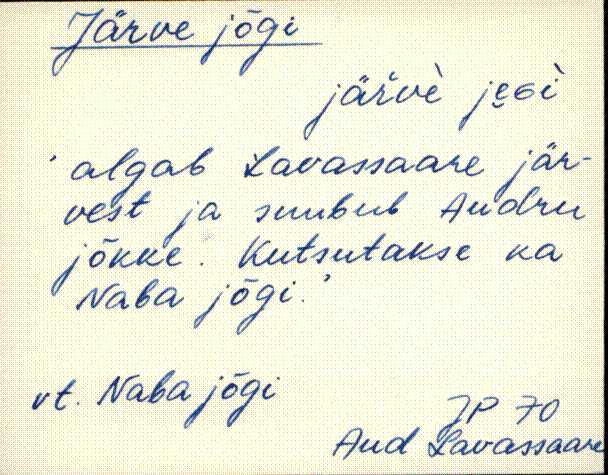 Järve jõgi
järvè je̮ɢì
'algab Lavassaare jär-
vest ja suubub Audru
jõkke. Kutsutakse ka
Naba jõgi.'
vt. Naba jõgi
JP 70
Aud Lavassaare